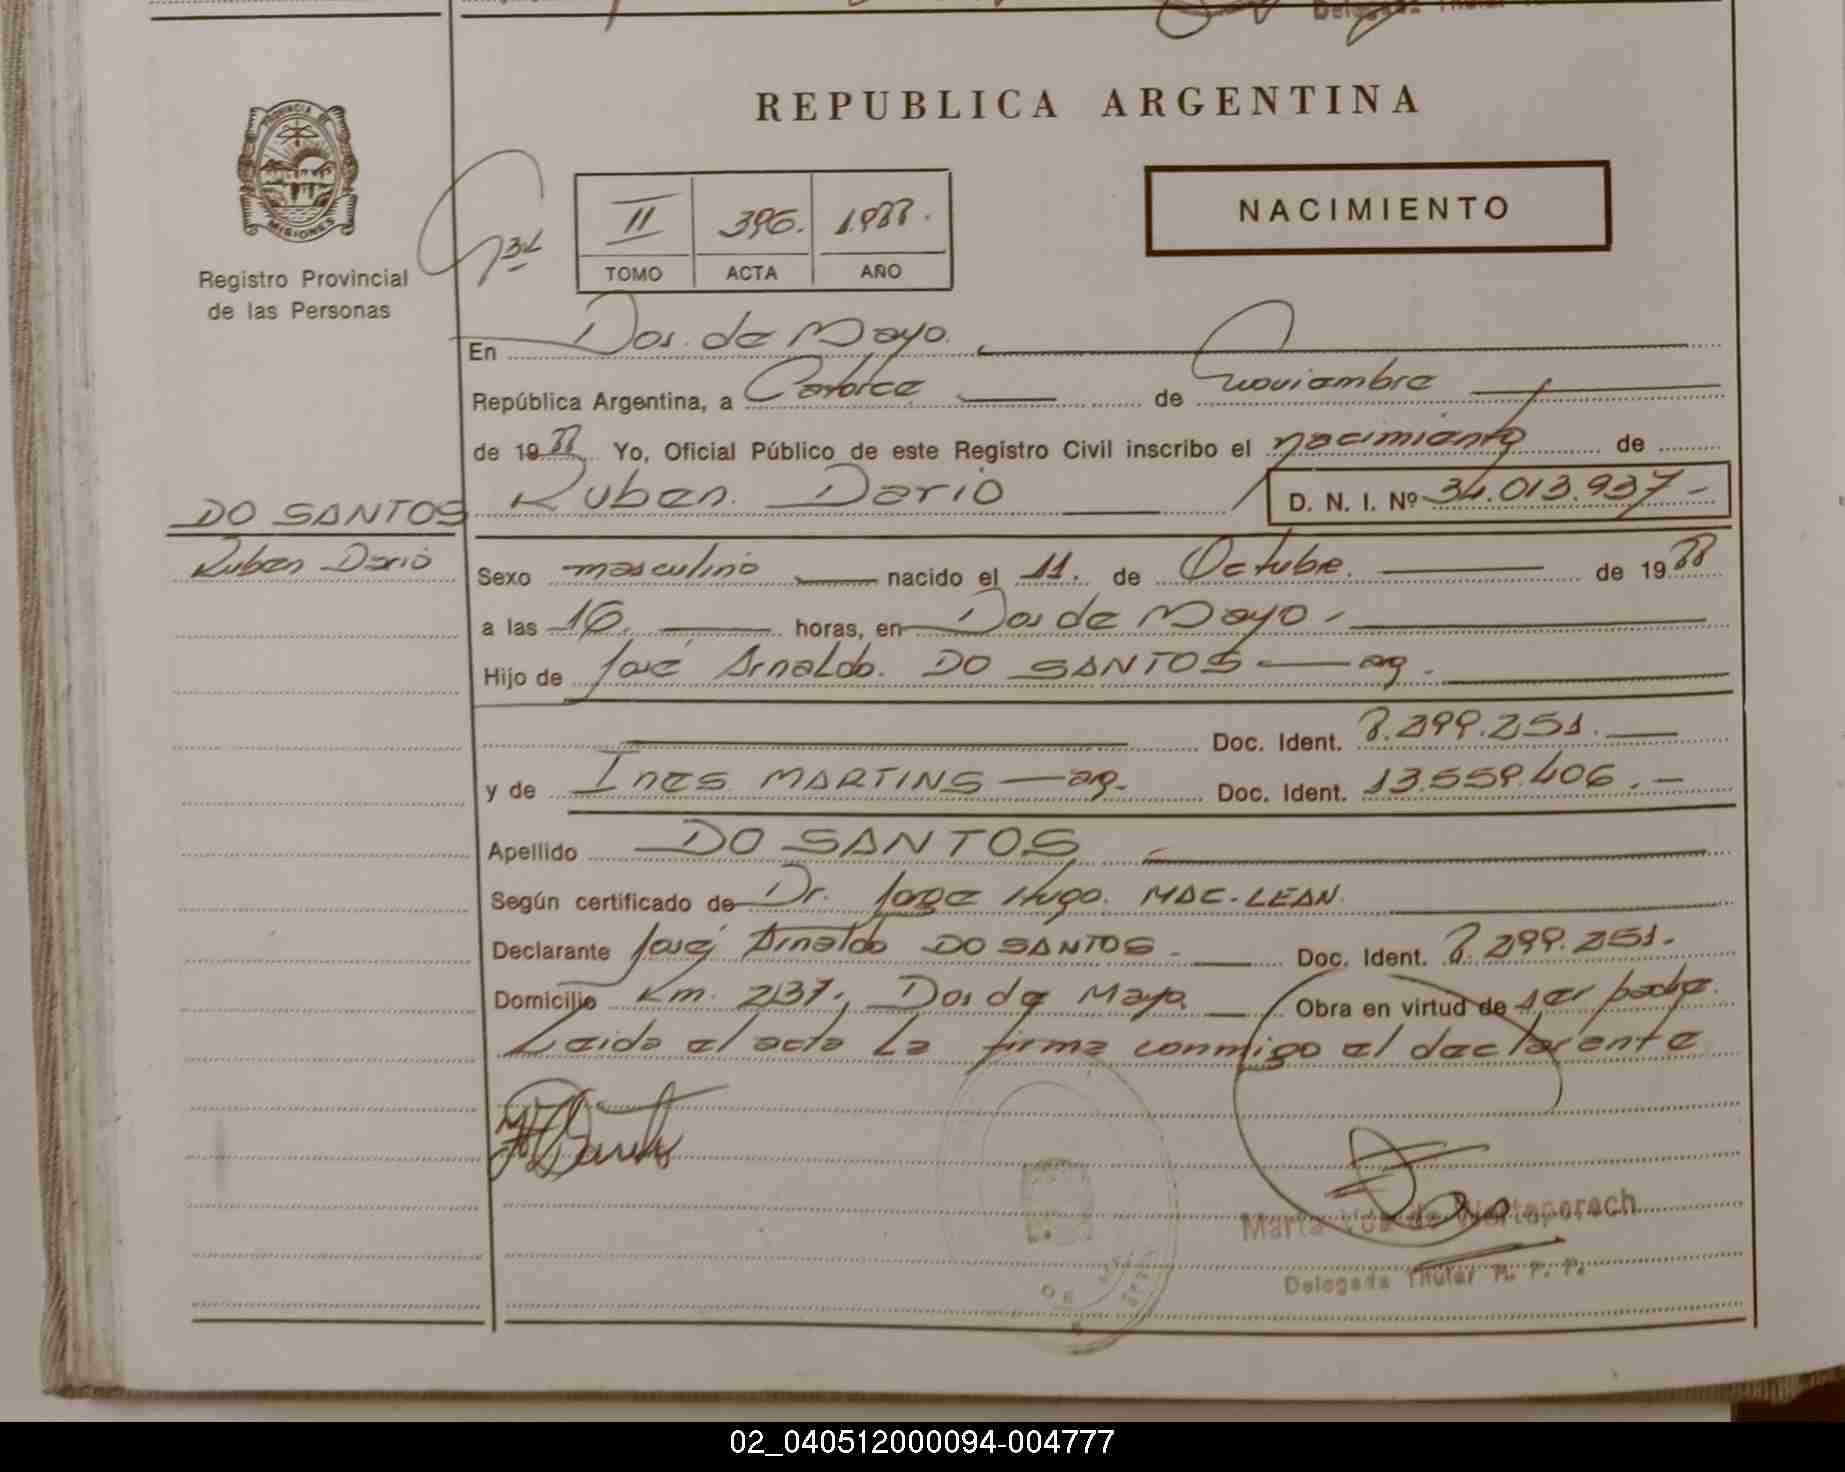 REPUBLICA ARGENTINA
PROVINCIA DE
MISIONES
Registro Provincial
de las Personas
II 396. 1.988.
TOMO ACTA AÑO
NACIMIENTO
En Dos de Mayo.
República Argentina, a Catorce de noviembre
de 1988 Yo, Oficial Público de este Registro Civil inscribo el nacimiento de
DO SANTOS
Ruben Dario
Ruben Dario D. N. I. Nº 34.013.937-
Sexo masculino nacido el 11. de Octubre. de 1988
a las 16. horas, en Dos de Mayo.
Hijo de José Arnaldo. DO SANTOS — arg.
Doc. Ident. 8.299.251.
y de Ines MARTINS — arg. Doc. Ident. 13.559.406.-
Apellido DO SANTOS
Según certificado de Dr. Jorge Hugo. MAC-LEAN.
Declarante José Arnaldo DO SANTOS. Doc. Ident. 8.299.251.
Domicilio Km. 237., Dos de Mayo. Obra en virtud de ser padre.
Leida el acta La firma conmigo el declarante
Marta de
Delegada Titular R. P. P.
02_040512000094-004777